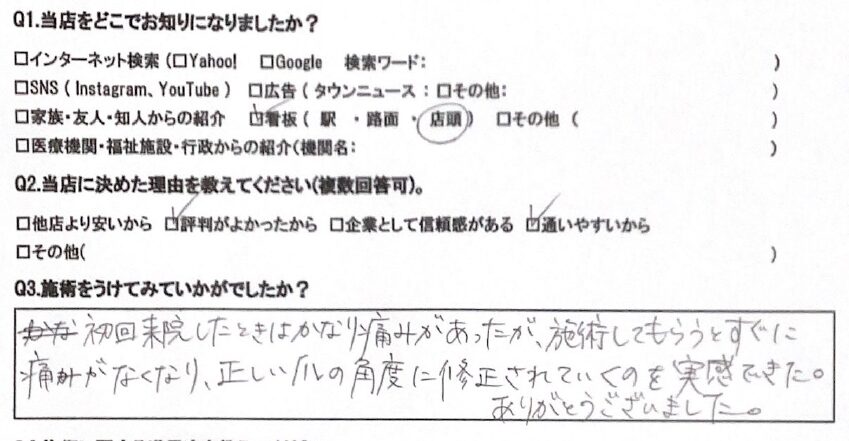 Q1.当店をどこでお知りになりましたか？
□インターネット検索（□Yahoo! □Google 検索ワード： ）
□SNS（Instagram、YouTube） □広告（タウンニュース：□その他：
□家族・友人・知人からの紹介 ☑看板（駅・路面・店頭） □その他（ ）
□医療機関・福祉施設・行政からの紹介（機関名： ）
Q2.当店に決めた理由を教えてください（複数回答可）。
□他店より安いから ☑評判がよかったから □企業として信頼感がある ☑通いやすいから
□その他（ ）
Q3.施術をうけてみていかがでしたか？
初回来院したときはかなり痛みがあったが、施術してもらうとすぐに
痛みがなくなり、正しい爪の角度に修正されていくのを実感できた。
ありがとうございました。